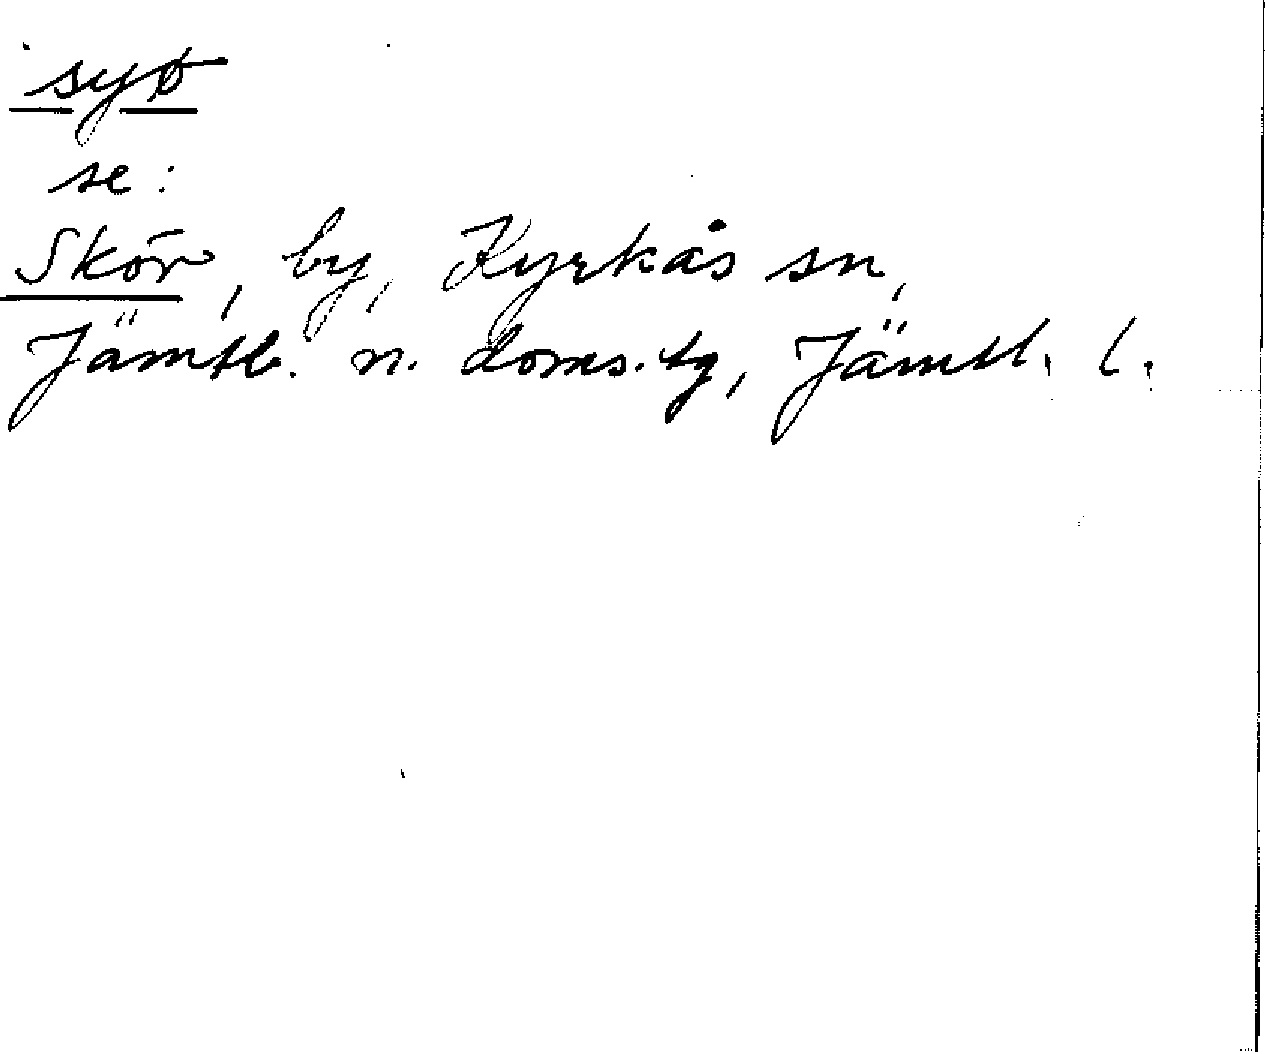 syð
se:
Skör, by, Kyrkås sn,
Jämtl. n. doms.tg, Jämtl. l.